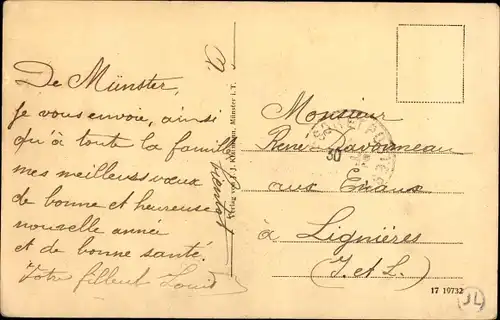 De Münster,
je vous envoie, ainsi
qu'à toute la famille
mes meilleurs vœux
de bonne et heureuse
nouvelle année
et de bonne santé.
Votre filleul Louis
Verlag von J. J. Münster i. T.
Monsieur
René
aux
à Lignières
(I. et L.)
30
17 10732
JL